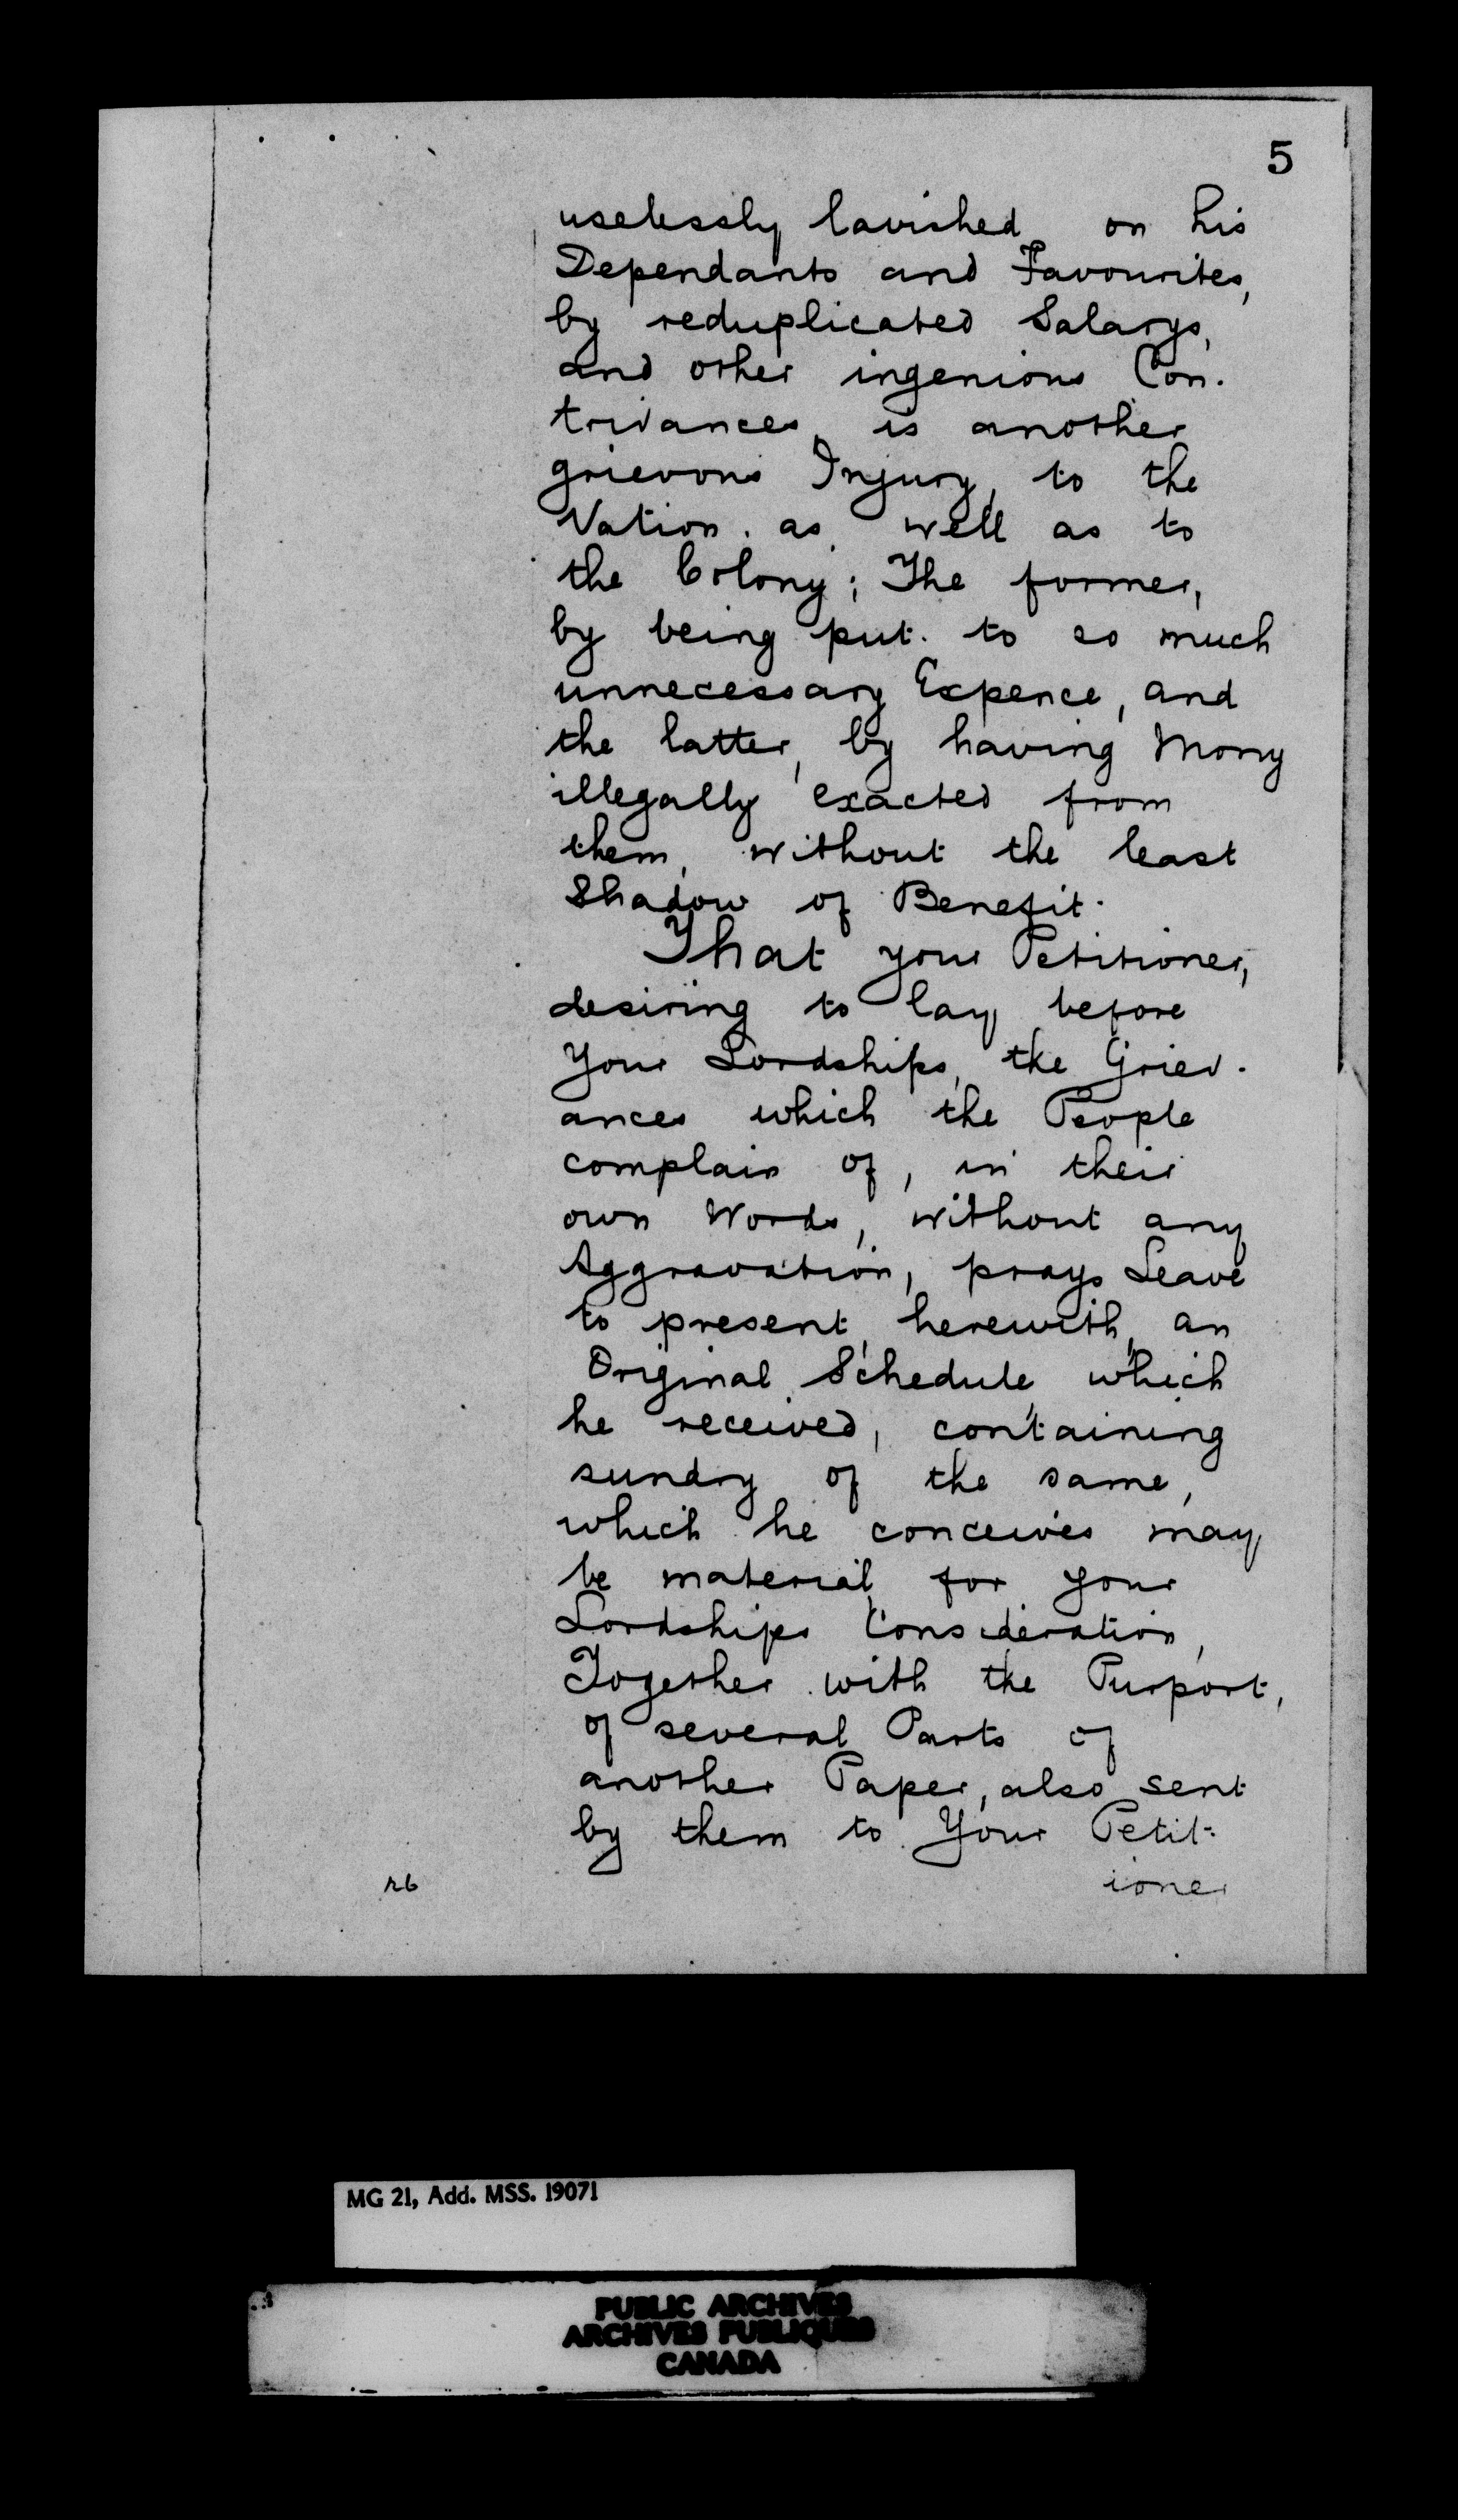 5
uselessly lavished, on his
Dependants and Favourites,
by reduplicated Salarys,
and other ingenious Con-
trivances, is another
grievous Injury, to the
Nation, as well as to
the Colony; The former,
by being put to so much
unnecessary Expence, and
the latter, by having Mony
illegally exacted from
them, without the least
Shadow of Benefit.
That your Petitioner,
desiring to lay before
Your Lordships, the Griev-
ances which the People
complain of, in their
own Words, without any
Aggravation, prays Leave
to present, herewith, an
Original Schedule, which
he received, containing
sundry of the same,
which he conceives may
be material, for your
Lordships Consideration,
Together with the Purport,
of several Parts of
another Paper, also sent
by them to Your Petit-
ioner
MG 21, Add. MSS. 19071
PUBLIC ARCHIVES
ARCHIVES PUBLIQUES
CANADA